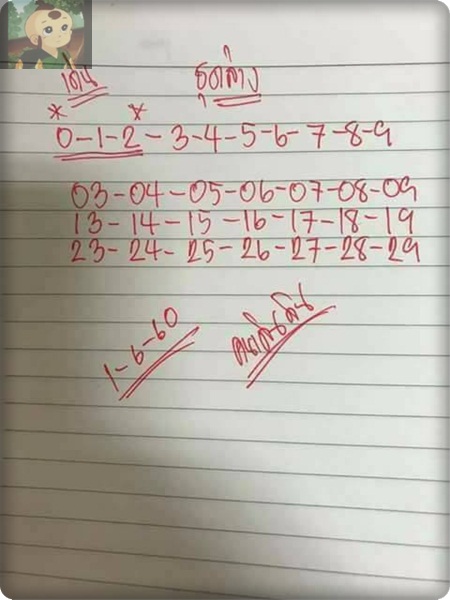 เด่น ชุดล่าง
* *
0-1-2-3-4-5-6-7-8-9
03-04-05-06-07-08-09
13-14-15-16-17-18-19
23-24-25-26-27-28-29
1-6-60